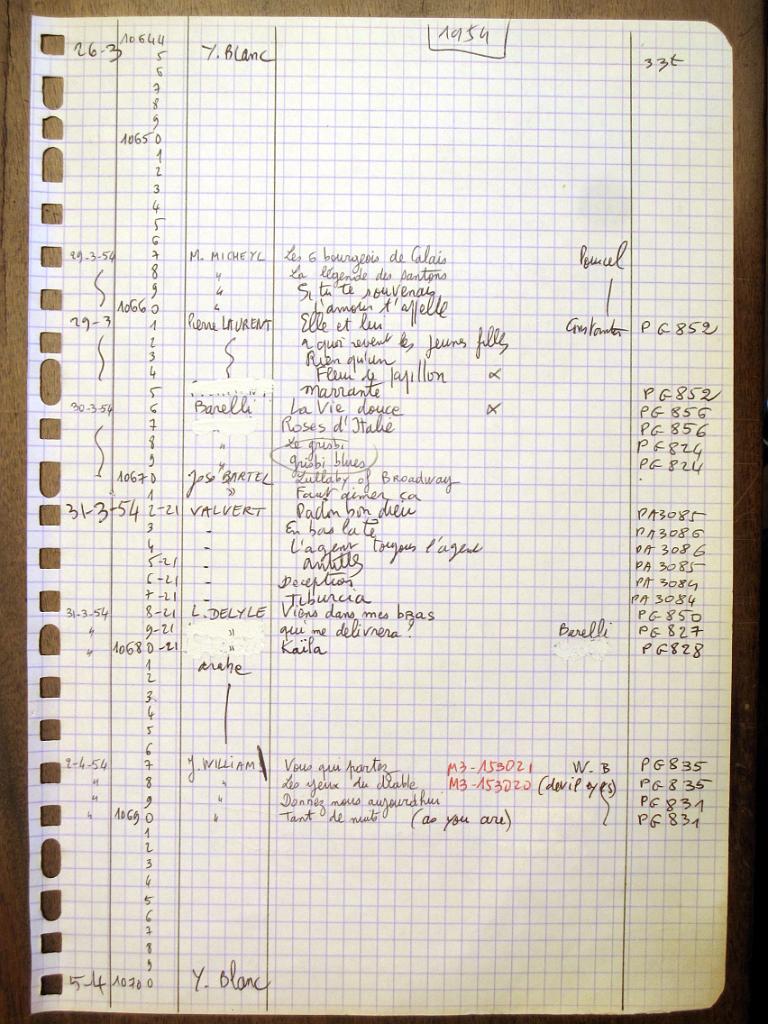 1954
26-3 10644 Y. Blanc 33t
5
6
7
8
9
10650
1
2
3
4
5
6
29-3-54 7 M. MICHEYL Les 6 bourgeois de Calais Pourcel
8 " La légende des santons
9 " Si tu te souvenais
10660 " L'amour t'appelle
29-3 1 Pierre LAURENT Elle et lui Constantin PG 852
2 A quoi revent les jeunes filles
3 Rien qu'un
4 Fleur de papillon ∝
5 marrante PG 852
30-3-54 6 Barelli La Vie douce ∝ PG 856
7 Roses d'Italie PG 856
8 " Le grisbi PG 824
9 " grisbi blues PG 824
10670 José BARTEL Lullaby of Broadway
1 " Faut aimer ça
31-3-54 2-21 VALVERT Padon bon dieu PA3085
3 - En bas la té PA 3086
4 - L'agent toujous l'agent PA 3086
5-21 - PA 3085
6-21 - Deception PA 3084
7-21 - Tiburcia PA 3084
31-3-54 8-21 L. DELYLE Viens dans mes bras PG 850
" 9-21 " qui me delivrera ? Barelli PG 827
" 10680-21 " Kaïla PG 828
1 arabe
2
3
4
5
6
2-4-54 7 J. WILLIAM Vous qui partez M3-153021 W. B PG 835
" 8 " Les yeux du diable M3-153020 (devil eyes) PG 835
" 9 " Donnez nous aujourd'hui PG 831
" 10690 " Tant de nuits (as you are) PG 831
1
2
3
4
5
6
7
8
9
5-4 10700 Y. Blanc